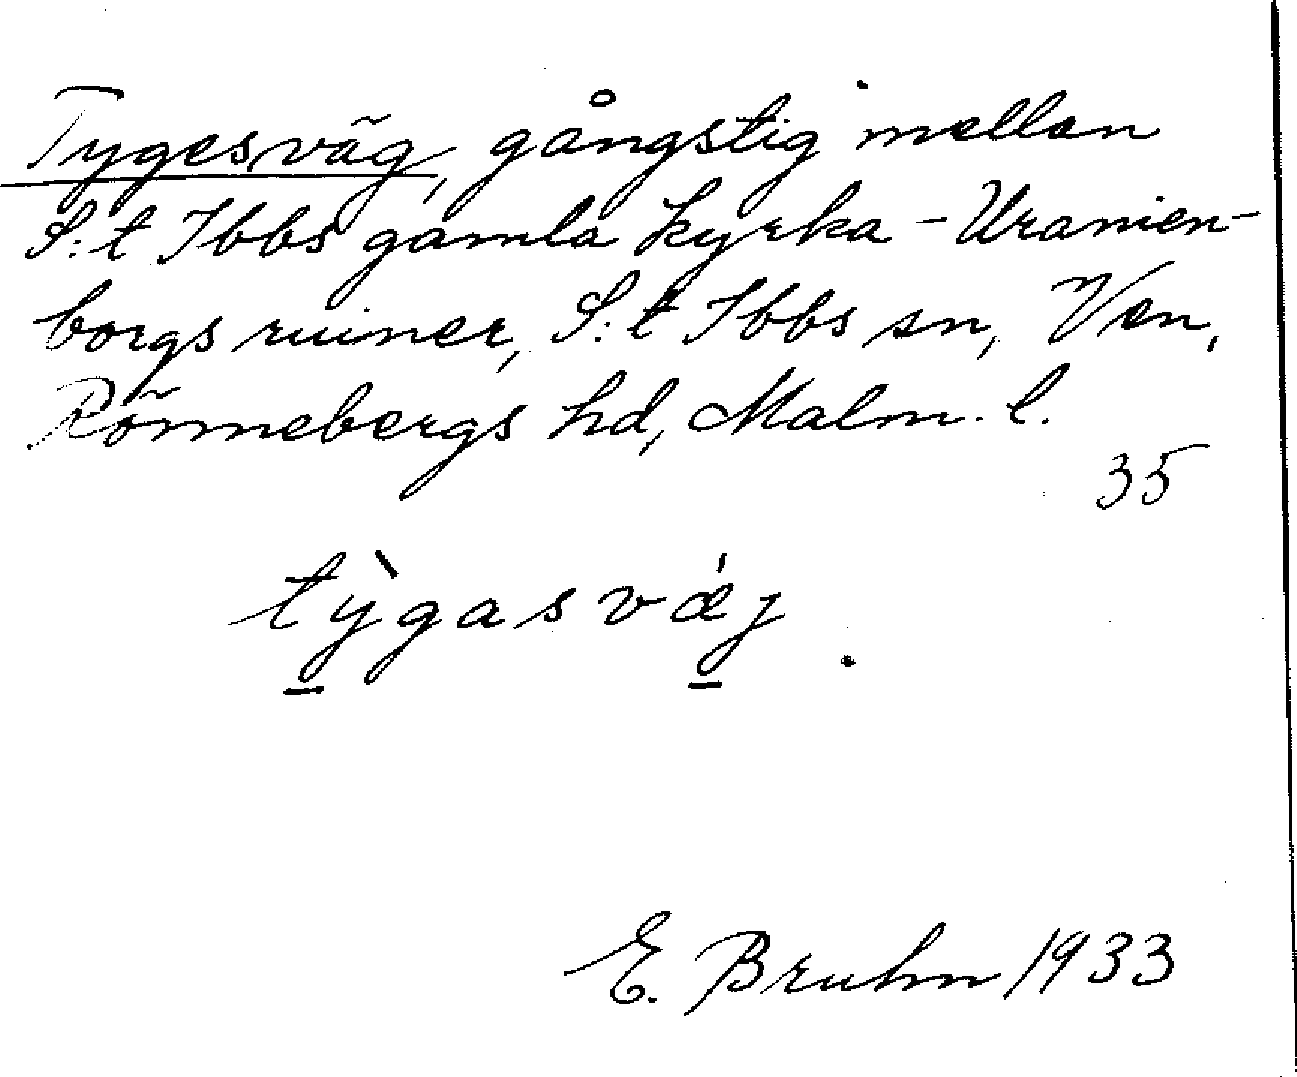 Tygesväg, gångstig mellan
S:t Ibbs gamla kyrka - Uranien-
borgs ruiner, S:t Ibbs sn, Ven,
Rönnebergs hd, Malm. l.
35
tỳgasvǽj.
E. Bruhn 1933